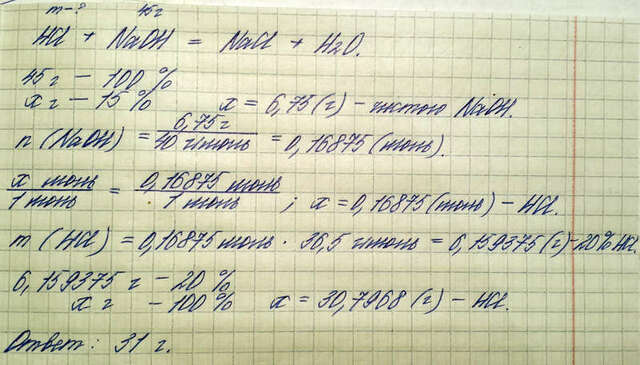 m-? 45 г
HCl + NaOH = NaCl + H2O.
45 г - 100 %
x г - 15 % x = 6,75 (г) - чистого NaOH.
n (NaOH) = 6,75 г / 40 г/моль = 0,16875 (моль).
x моль / 1 моль = 0,16875 моль / 1 моль ; x = 0,16875 (моль) - HCl.
m (HCl) = 0,16875 моль · 36,5 г/моль = 6,159375 (г) - 20% HCl.
6,159375 г - 20 %
x г - 100 % x = 30,7968 (г) - HCl.
Ответ: 31 г.